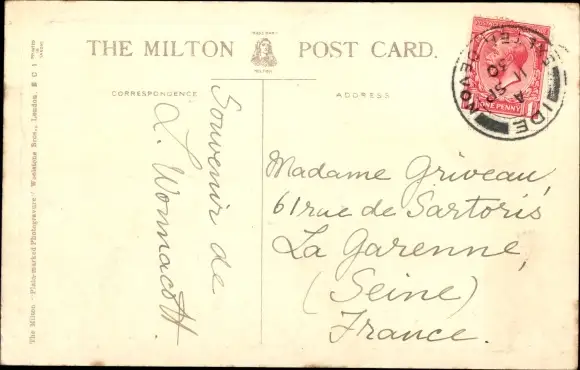 THE MILTON POST CARD.
MILTON
CORRESPONDENCE
ADDRESS
Souvenir de
L. Wonnacott.
Madame Griveau,
61 rue de Sartoris
La Garenne,
(Seine)
France.
ONE PENNY
The Milton "Plain-marked Photogravure" Woolstone Bros., London, E C 1